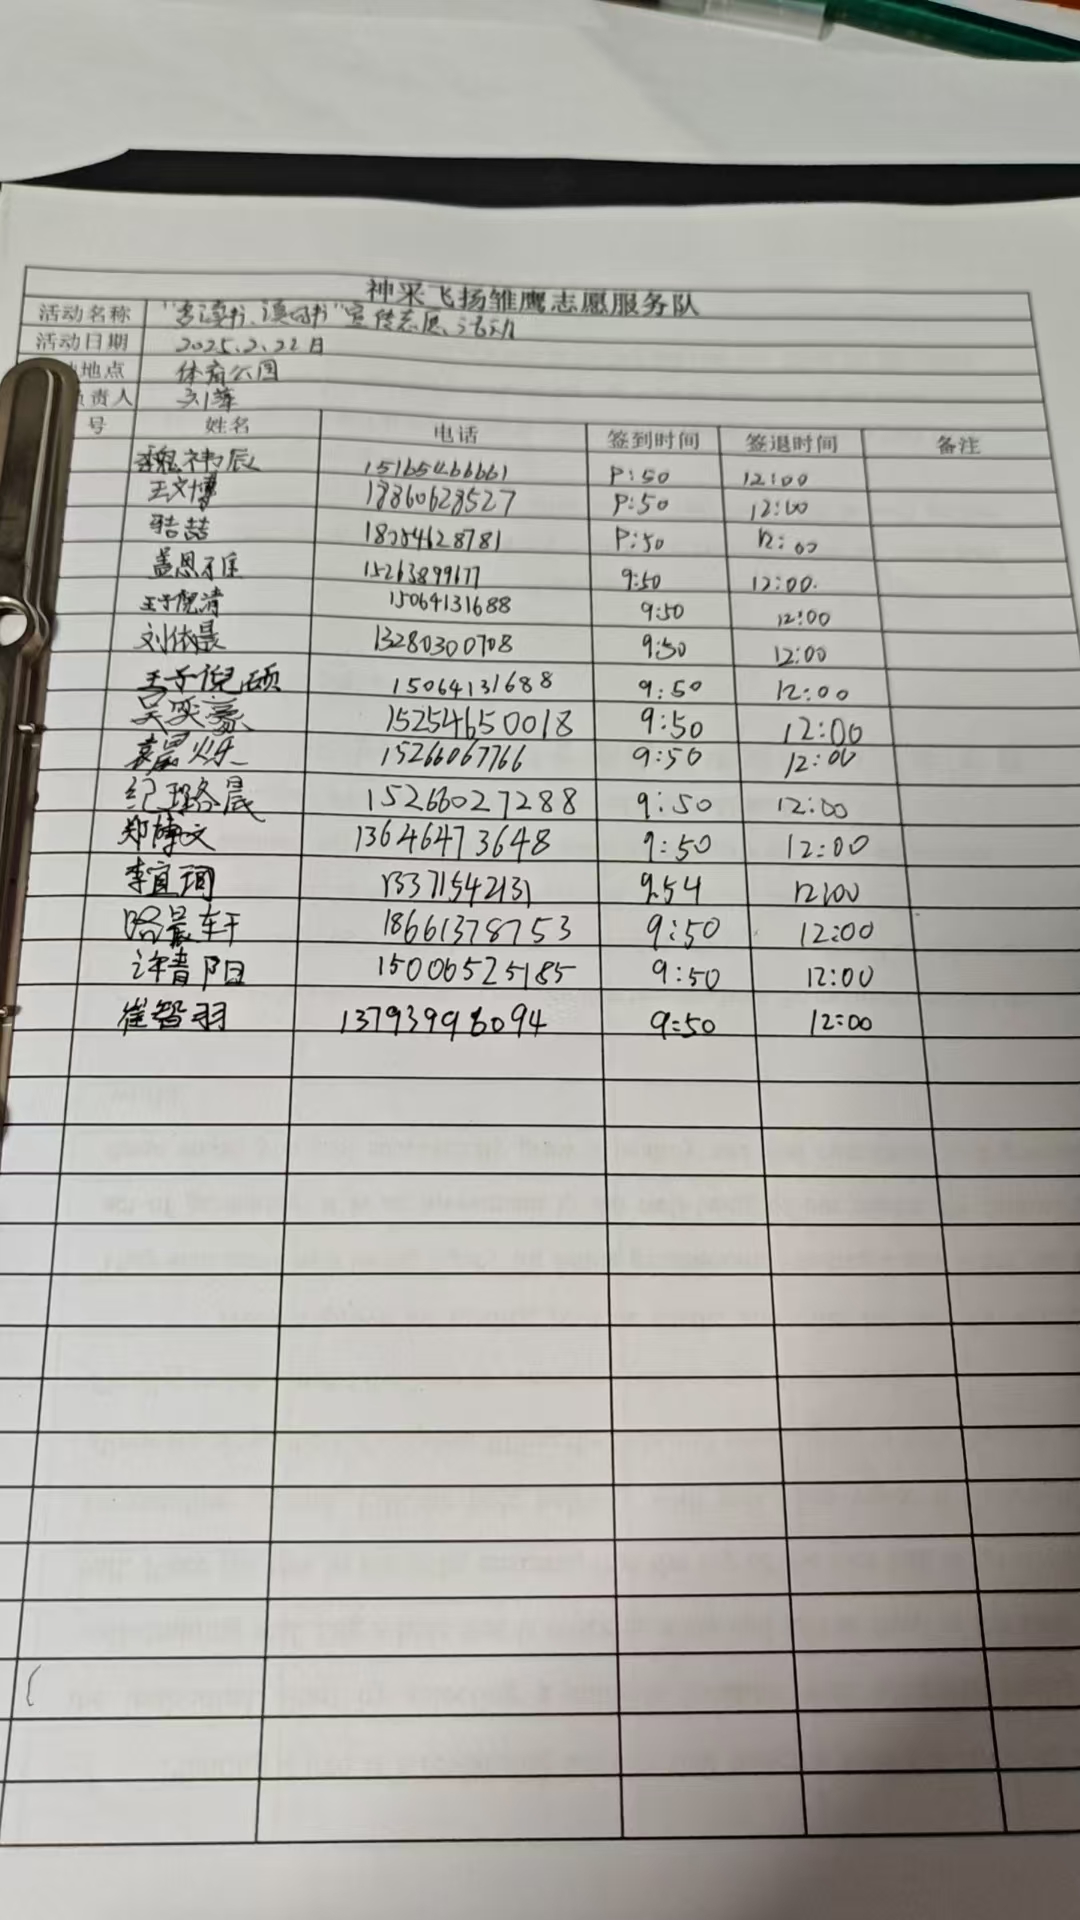 神采飞扬雏鹰志愿服务队
活动名称 "多读书、读好书"宣传志愿活动
活动日期 2025.2.22日
地点 体育公园
责人 刘萍
号 姓名 电话 签到时间 签退时间 备注
魏祎辰 15165466661 9:50 12:00
王文博 18860628527 9:50 12:00
喆 18254628781 9:50 12:00
盖恩 15263899677 9:50 12:00.
王子倪清 15064131688 9:50 12:00
刘依晨 13280300708 9:50 12:00
王子倪硕 15064131688 9:50 12:00
吴奕豪 15254650018 9:50 12:00
袁晨 15266067766 9:50 12:00
纪璐晨 15266027288 9:50 12:00
郑博文 13646473648 9:50 12:00
李宜珂 13371542131 9:54 12:00
路晨轩 18661378753 9:50 12:00
许青阳 15006525185 9:50 12:00
崔智羽 13793998094 9:50 12:00